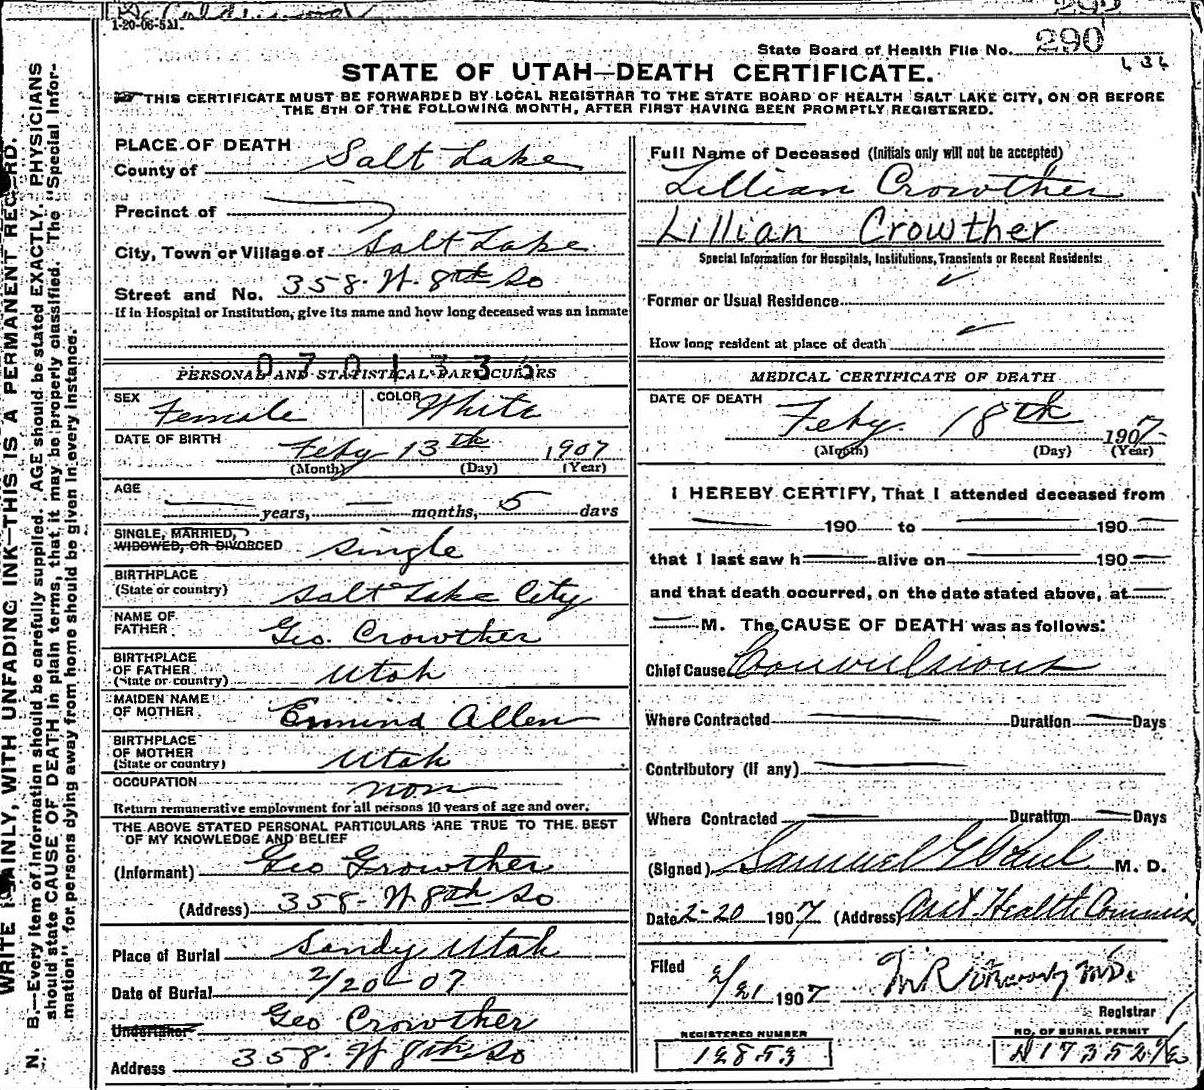 1-20-06-5M.
290
State Board of Health File No. 290
STATE OF UTAH—DEATH CERTIFICATE.
THIS CERTIFICATE MUST BE FORWARDED BY LOCAL REGISTRAR TO THE STATE BOARD OF HEALTH SALT LAKE CITY, ON OR BEFORE
THE 5TH OF THE FOLLOWING MONTH, AFTER FIRST HAVING BEEN PROMPTLY REGISTERED.
WRITE PLAINLY, WITH UNFADING INK—THIS IS A PERMANENT RECORD.
N. B.—Every item of information should be carefully supplied. AGE should be stated EXACTLY. PHYSICIANS
should state CAUSE OF DEATH in plain terms, that it may be properly classified. The "Special Infor-
mation" for persons dying away from home should be given in every instance.
PLACE OF DEATH
County of Salt Lake
Precinct of
City, Town or Village of Salt Lake
Street and No. 358. W. 8th So
If in Hospital or Institution, give its name and how long deceased was an inmate
0701335
PERSONAL AND STATISTICAL PARTICULARS
SEX Female COLOR White
DATE OF BIRTH Feby 13th 1907
(Month) (Day) (Year)
AGE years, months, 5 days
SINGLE, MARRIED,
WIDOWED, OR DIVORCED single
BIRTHPLACE
(State or country) Salt Lake City
NAME OF
FATHER Geo. Crowther
BIRTHPLACE
OF FATHER
(State or country) Utah
MAIDEN NAME
OF MOTHER Allen
BIRTHPLACE
OF MOTHER
(State or country) Utah
OCCUPATION non
Return remunerative employment for all persons 10 years of age and over.
THE ABOVE STATED PERSONAL PARTICULARS ARE TRUE TO THE BEST
OF MY KNOWLEDGE AND BELIEF
(Informant) Geo Crowther
(Address) 358- W 8th So
Place of Burial Sandy Utah
Date of Burial 2/20-07
Undertaker Geo Crowther
Address 358- W 8th So
Full Name of Deceased (Initials only will not be accepted)
Lillian Crowther
Lillian Crowther
Special Information for Hospitals, Institutions, Transients or Recent Residents:
Former or Usual Residence
How long resident at place of death
MEDICAL CERTIFICATE OF DEATH
DATE OF DEATH
Feby. 18th 1907
(Month) (Day) (Year)
I HEREBY CERTIFY, That I attended deceased from
190 to 190
that I last saw h alive on 190
and that death occurred, on the date stated above, at
M. The CAUSE OF DEATH was as follows:
Chief Cause Convulsions
Where Contracted Duration Days
Contributory (if any)
Where Contracted Duration Days
(Signed) Samuel G Paul M. D.
Date 2-20 1907 (Address) Asst. Health Commis
Filed 2/21 1907 M.D.
Registrar
REGISTERED NUMBER
12853
NO. OF BURIAL PERMIT